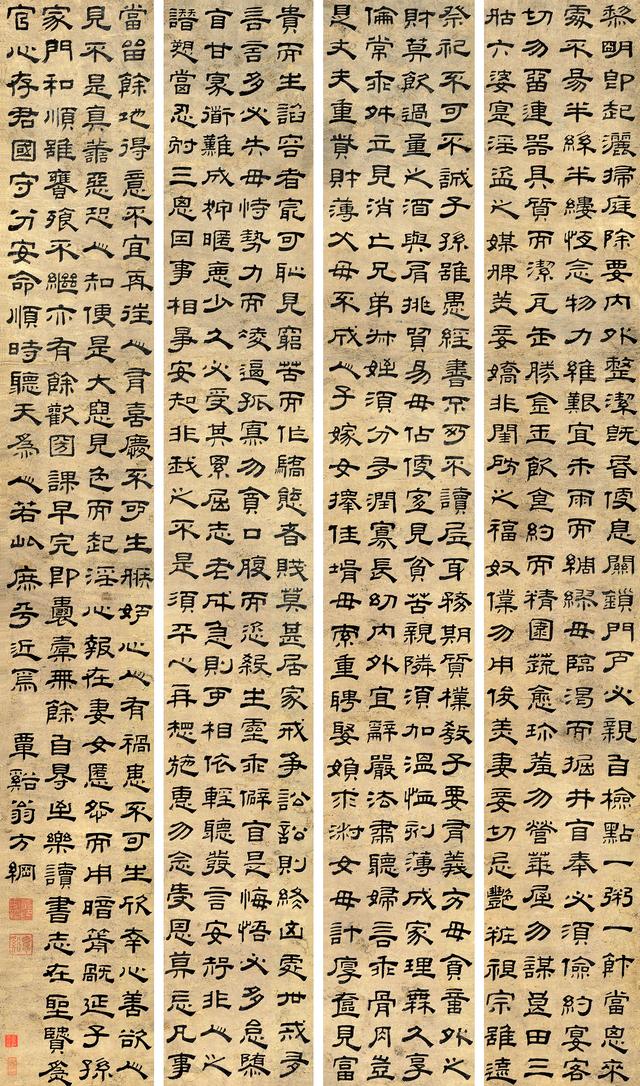 黎明即起灑掃庭除要內外整潔既昏便息關鎖門戶必親自檢點一粥一飯當思來
處不易半絲半縷恆念物力維艱宜未雨而綢繆毋臨渴而掘井自奉必須儉約宴客
切勿留連器具質而潔瓦缶勝金玉飲食約而精園蔬愈珍羞勿營華屋勿謀良田三
姑六婆實淫盜之媒婢美妾嬌非閨房之福奴僕勿用俊美妻妾切忌艷粧祖宗雖遠
祭祀不可不誠子孫雖愚經書不可不讀居身務期質樸教子要有義方毋貪意外之
財莫飲過量之酒與肩挑貿易毋佔便宜見貧苦親隣須加溫恤刻薄成家理無久享
倫常乖舛立見消亡兄弟叔姪須分多潤寡長幼內外宜辭嚴法肅聽婦言乖骨肉豈
是丈夫重貲財薄父母不成人子嫁女擇佳壻毋索重聘娶媳求淑女毋計厚奩見富
貴而生諂容者最可恥見窮苦而作驕態者賤莫甚居家戒爭訟訟則終凶處世戒多
言言多必失毋恃勢力而凌逼孤寡勿貪口腹而恣殺生靈乖僻自是悔悟必多怠惰
自甘家衜難成狎暱惡少久必受其累屈志老成急則可相依輕聽發言安知非人之
譖愬當忍耐三思因事相爭安知非我之不是須平心再想施惠勿念受恩莫忘凡事
當留餘地得意不宜再往人有喜慶不可生嫉妒心人有禍患不可生欣幸心善欲人
見不是真善惡恐人知便是大惡見色而起淫心報在妻女匿怨而用暗箭禍延子孫
家門和順雖饔飧不繼亦有餘歡國課早完即囊橐無餘自得至樂讀書志在聖賢為
官心存君國守分安命順時聽天為人若此庶乎近焉 覃谿翁方綱